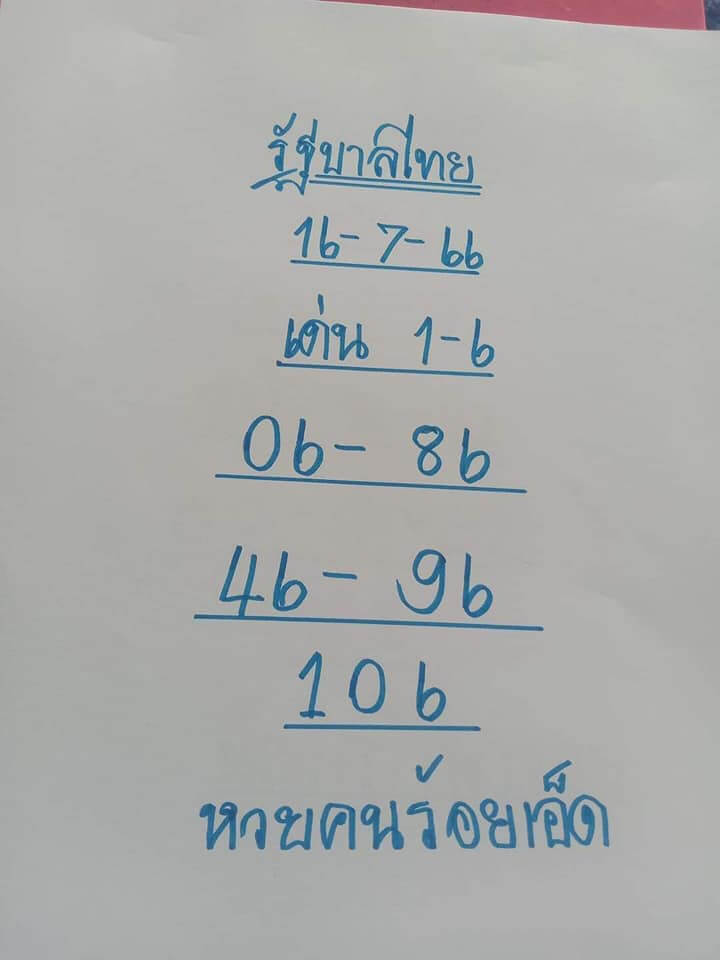 รัฐบาลไทย
16-7-66
เด่น 1-6
06- 86
46- 96
106
หวยคนร้อยเอ็ด